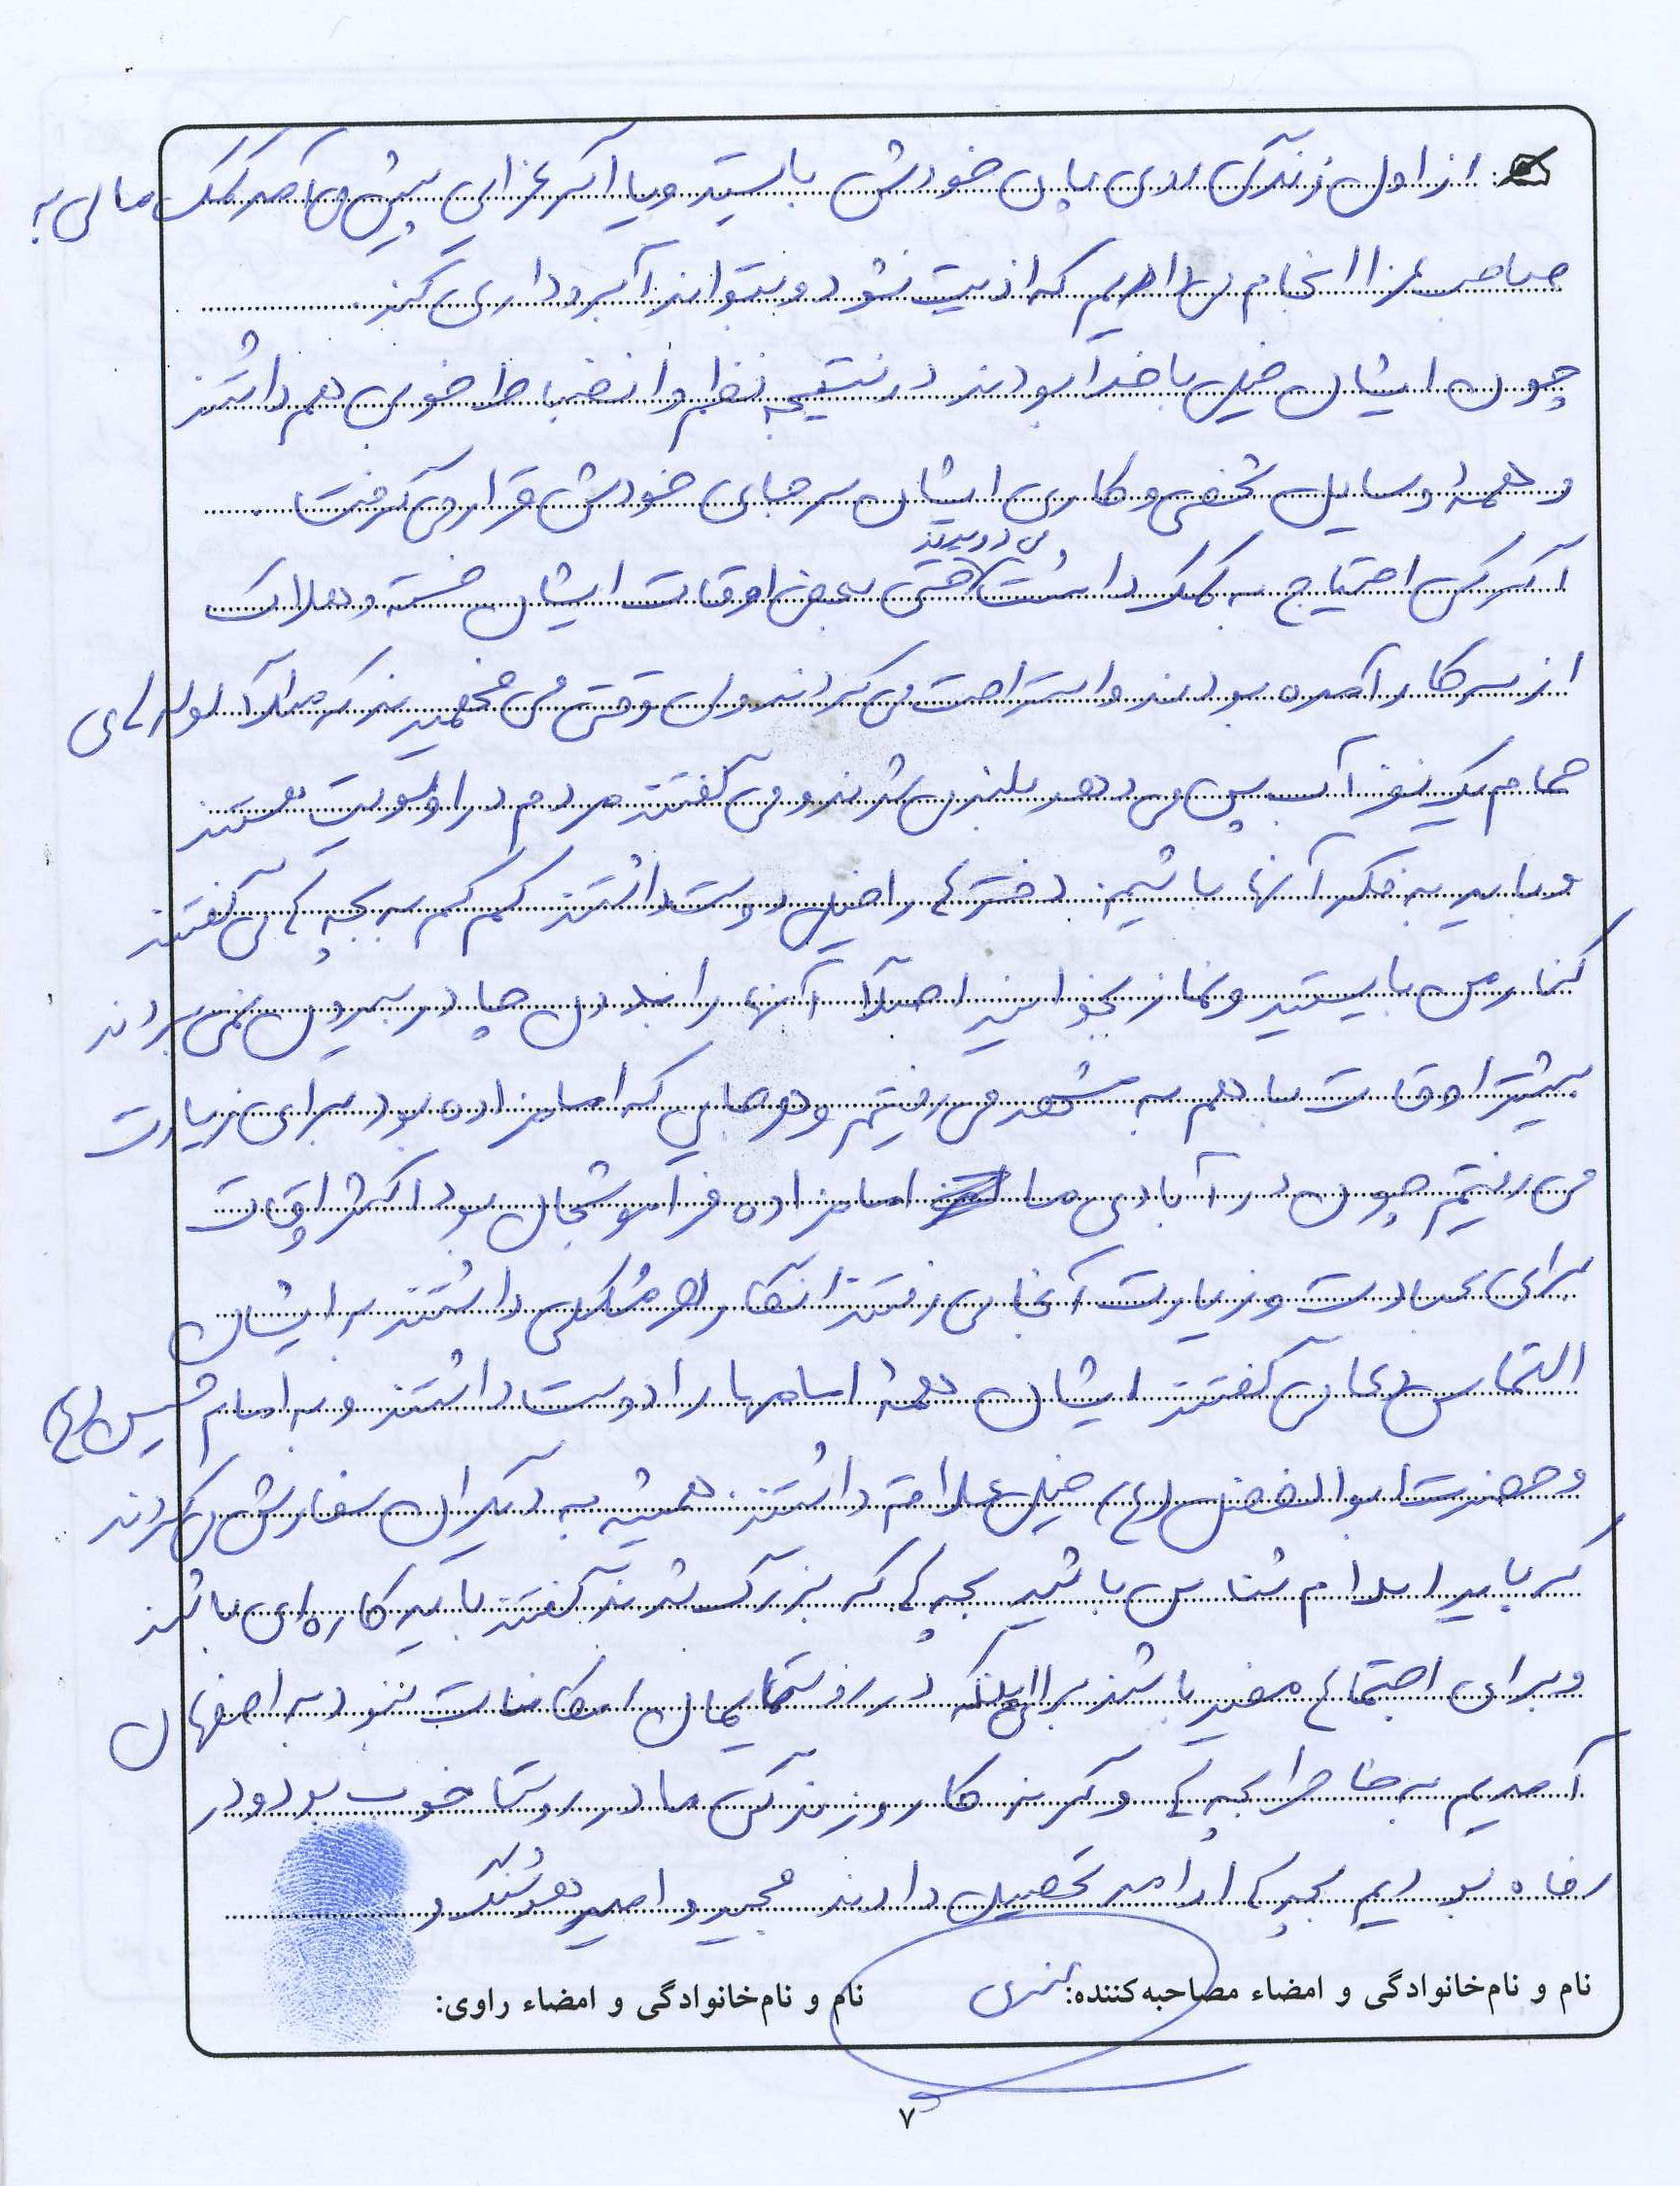 از اول زندگی روی پای خودش بایستد و یا اگر عزایی پیش می آمد کمک مالی به
صاحب عزا انجام می دادیم که اذیت نشود و بتواند آبروداری کند.
چون ایشان خیلی با خدا بودند در نتیجه نظم و انضباط خوبی هم داشتند
و همهٔ وسایل شخصی و کاری ایشان سر جای خودش قرار می گرفت.
اگر کسی احتیاج به کمک داشت می دویدند حتی بعضی اوقات ایشان خسته و هلاک
از سر کار آمده بودند و استراحت می کردند ولی وقتی می فهمیدند که مثلاً لوله های
حمام یک نفر آب پس می دهد بلند می شدند و می گفتند مردم در اولویت هستند
و باید به فکر آنها باشیم. دخترها را خیلی دوست داشتند کم کم به بچه ها می گفتند
کنار من بایستید و نماز بخوانید اصلاً آنها را بدون چادر بیرون نمی بردند
بیشتر اوقات با هم به مشهد می رفتیم و هر جایی که امامزاده بود برای زیارت
می رفتیم چون در آبادی ما امامزاده فراموشجان بود اکثر اوقات
برای عبادت و زیارت آنجا می رفتند انگار هر مشکلی داشتند به ایشان
التماس دعا می گفتند ایشان همهٔ امامها را دوست داشتند و به امام حسین (ع)
و حضرت ابوالفضل (ع) خیلی علاقه داشتند. همیشه به دیگران سفارش می کردند
که باید اسلام شناس باشید بچه ها که بزرگ شدند گفتند باید کاره ای باشند
و برای اجتماع مفید باشند برای اینکه در روستایمان امکانات نبود به اصفهان
آمدیم به خاطر بچه ها وگرنه کار و زندگی ما در روستا خوب بود و در
رفاه بودیم بچه ها ادامه تحصیل دادند مجید و امیر هوشنگ و
نام و نام‌خانوادگی و امضاء مصاحبه‌کننده:
نام و نام‌خانوادگی و امضاء راوی:
۷